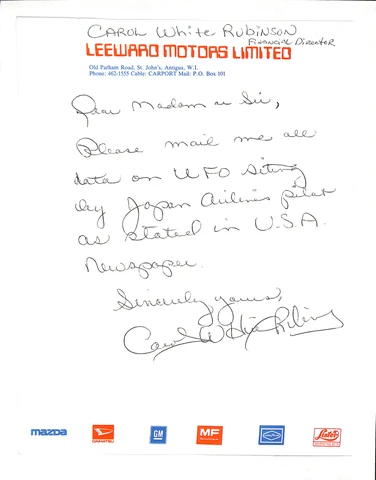 CAROL White ROBINSON
Financial Director
LEEWARD MOTORS LIMITED
Old Parham Road, St. John's, Antigua, W.I.
Phone: 462-1555 Cable: CARPORT Mail: P.O. Box 101
Dear Madam or Sir,
Please mail me all
data on UFO Siting
by Japan Airlines pilot
as stated in U.S.A.
Newspaper.
Sincerely yours,
Carol White Robinson
mazda
DAIHATSU
GM
MF
Lister